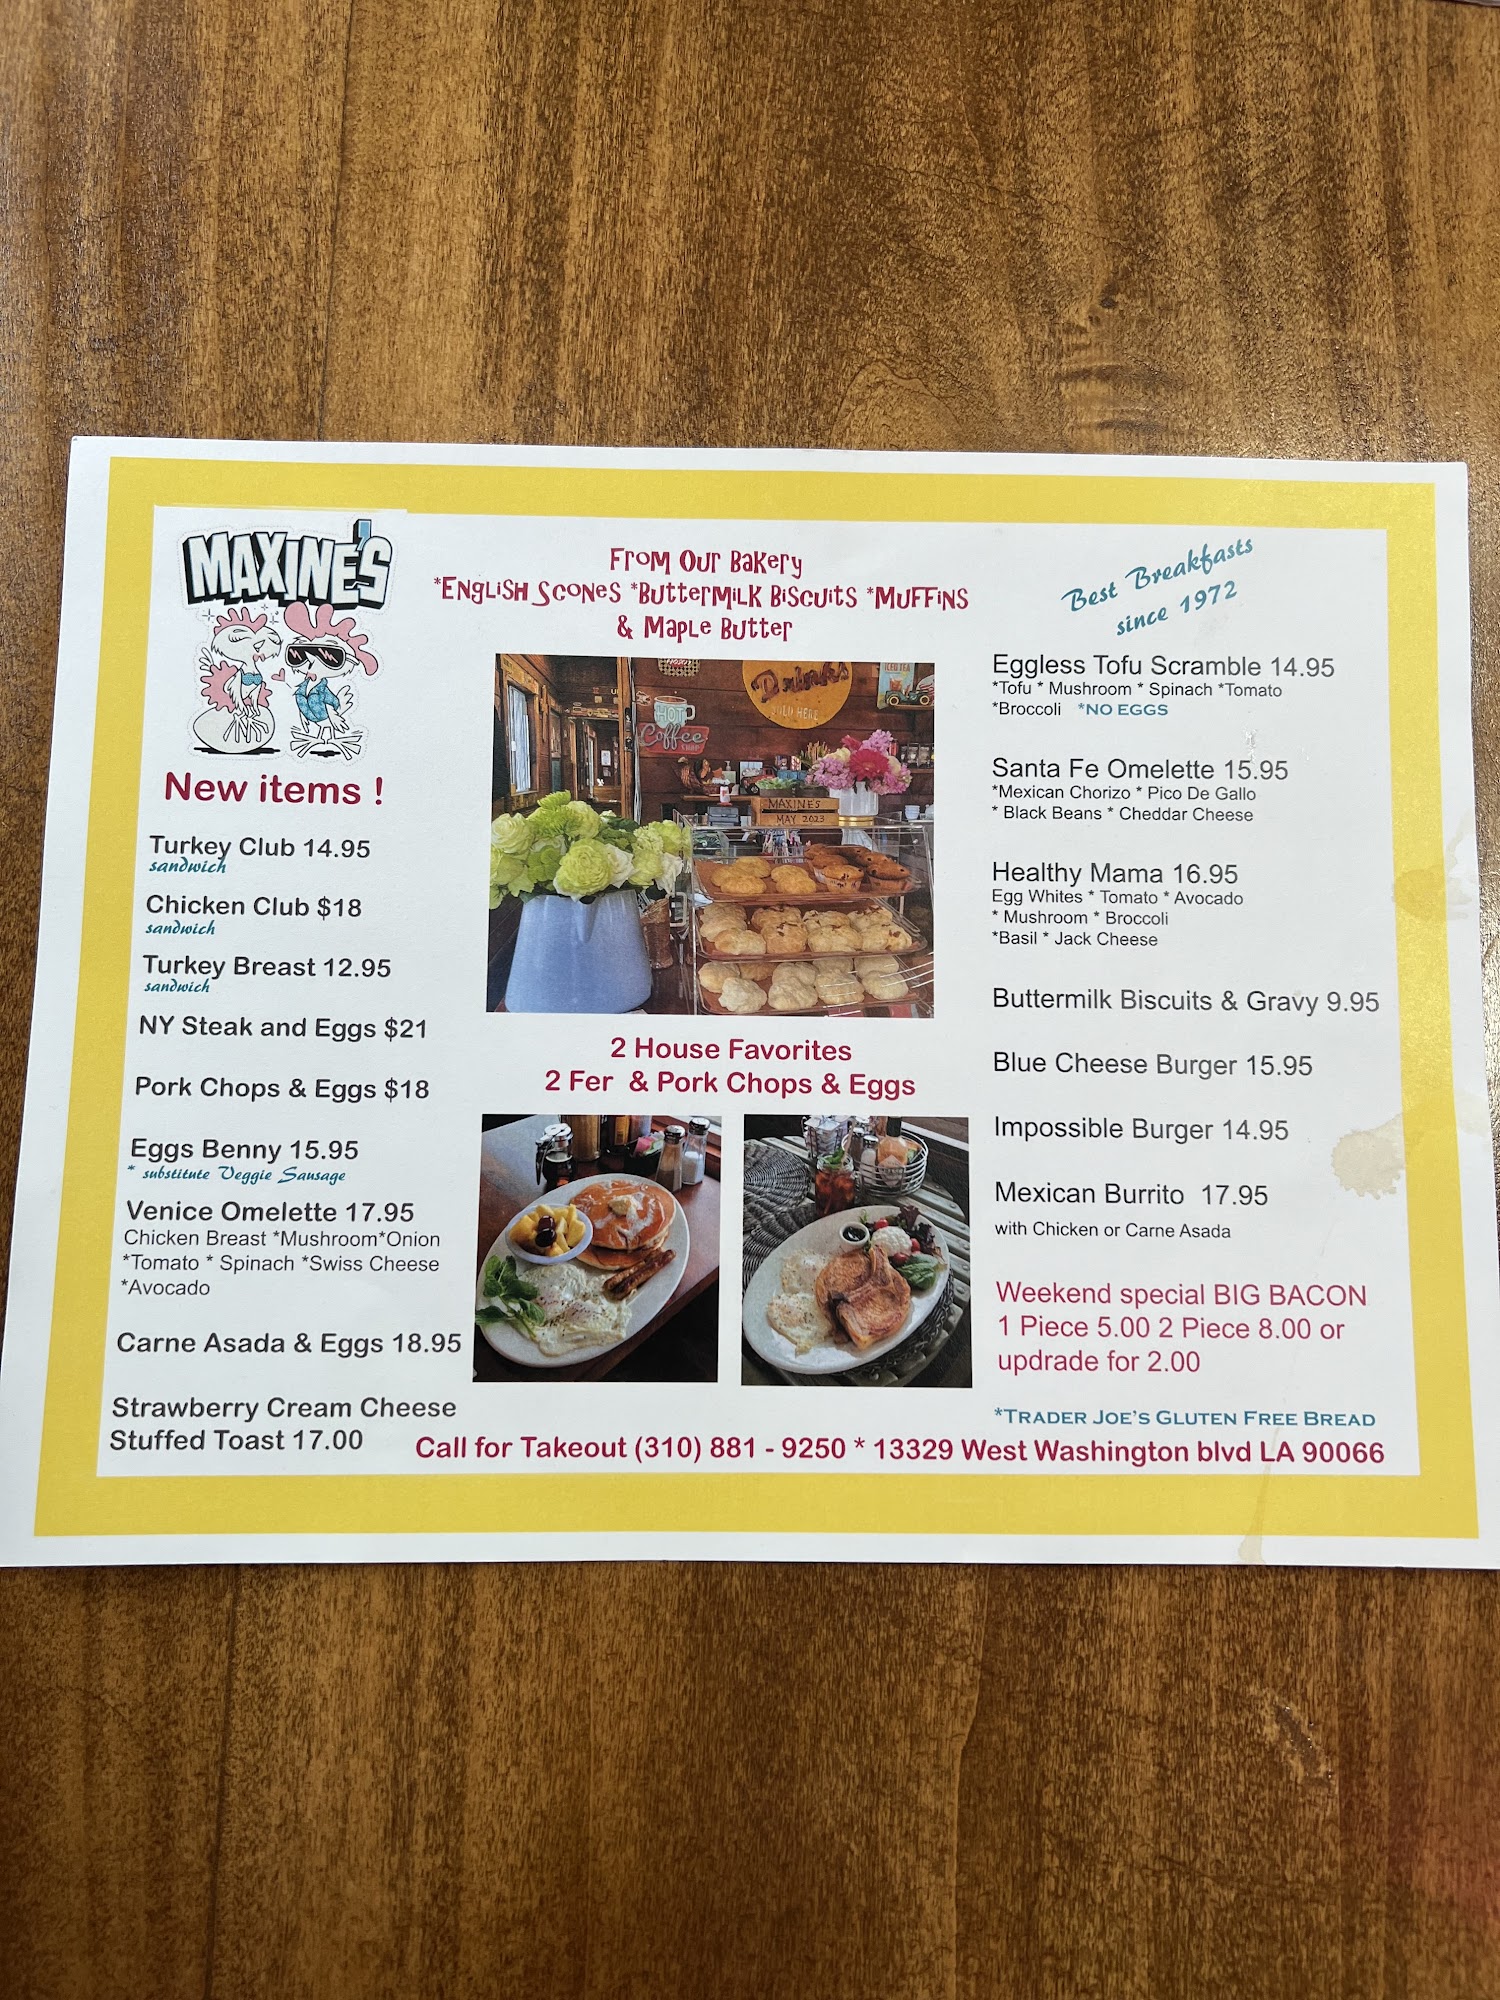 MAXINE'S
New items !
Turkey Club 14.95
sandwich
Chicken Club $18
sandwich
Turkey Breast 12.95
sandwich
NY Steak and Eggs $21
Pork Chops & Eggs $18
Eggs Benny 15.95
* substitute Veggie Sausage
Venice Omelette 17.95
Chicken Breast *Mushroom*Onion
*Tomato * Spinach *Swiss Cheese
*Avocado
Carne Asada & Eggs 18.95
Strawberry Cream Cheese
Stuffed Toast 17.00
From Our Bakery
*English Scones *Buttermilk Biscuits *Muffins
& Maple Butter
Drinks
SOLD HERE
ICED TEA
HOT
Coffee
SHOP
MAXINES
MAY 2023
2 House Favorites
2 Fer & Pork Chops & Eggs
Best Breakfasts
since 1972
Eggless Tofu Scramble 14.95
*Tofu * Mushroom * Spinach *Tomato
*Broccoli *NO EGGS
Santa Fe Omelette 15.95
*Mexican Chorizo * Pico De Gallo
* Black Beans * Cheddar Cheese
Healthy Mama 16.95
Egg Whites * Tomato * Avocado
* Mushroom * Broccoli
*Basil * Jack Cheese
Buttermilk Biscuits & Gravy 9.95
Blue Cheese Burger 15.95
Impossible Burger 14.95
Mexican Burrito 17.95
with Chicken or Carne Asada
Weekend special BIG BACON
1 Piece 5.00 2 Piece 8.00 or
updrade for 2.00
*Trader Joe's Gluten Free Bread
Call for Takeout (310) 881 - 9250 * 13329 West Washington blvd LA 90066